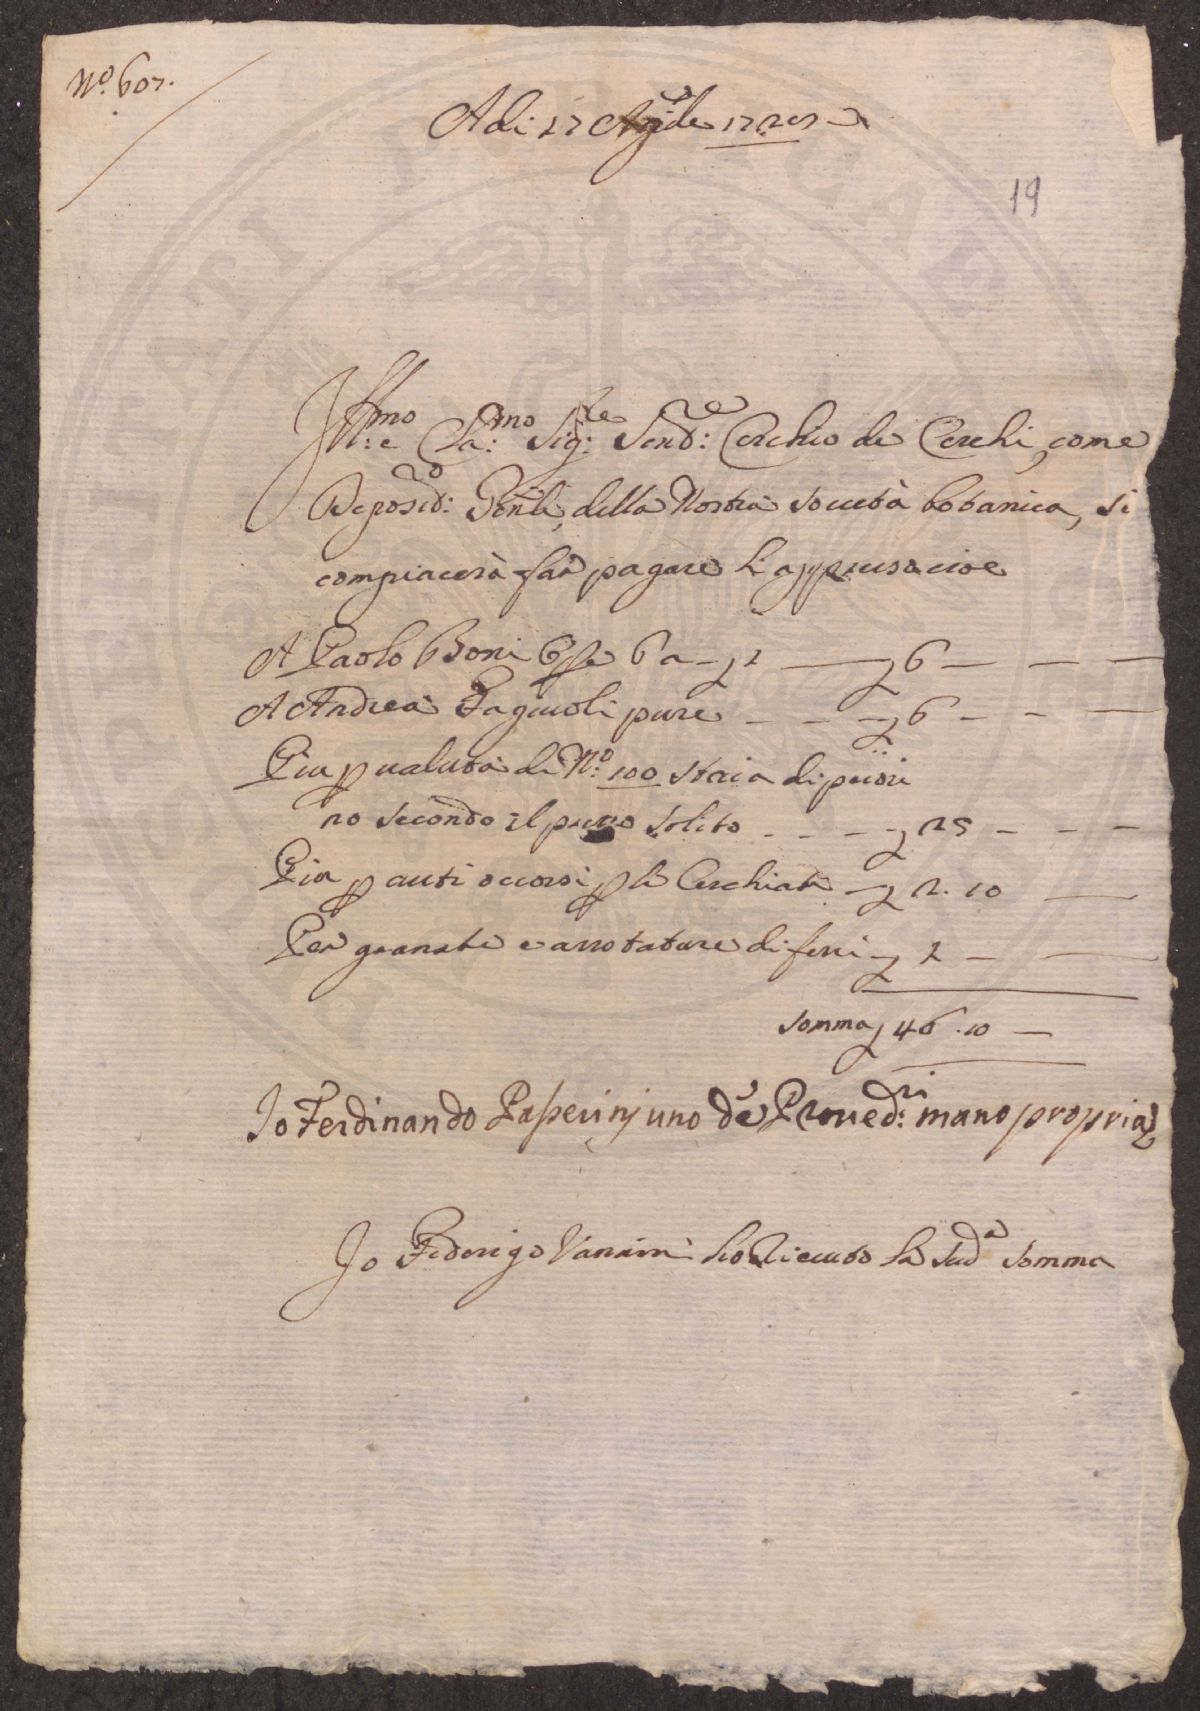 N.º 607.
Adi 17 Aple
19
Ill:mo e Cla:mo Sig:re Send:re Cerchio de Cerchi, come
Deposit:rio Gen:le della Nostra Società botanica, si
compiacerà far pagare li appresso cioe
A Paolo Boni 6 a £ 1 — £ 6 — — —
A Andrea Fagiuoli pure — — — £ 6 — — —
Piu p valuta di N.º 100 staia di pecori
no secondo il solito — — — £ 25 — — —
Piu p auti occorsi p le Cerchiate — £ 2. 10 —
Per granate e arrotature di ferri £ 7 — —
Somma £ 46. 10 —
Io Ferdinando Paperinj uno de Proved:ri mano propria
Io Federigo Vannini ho riceuto la sud.a somma